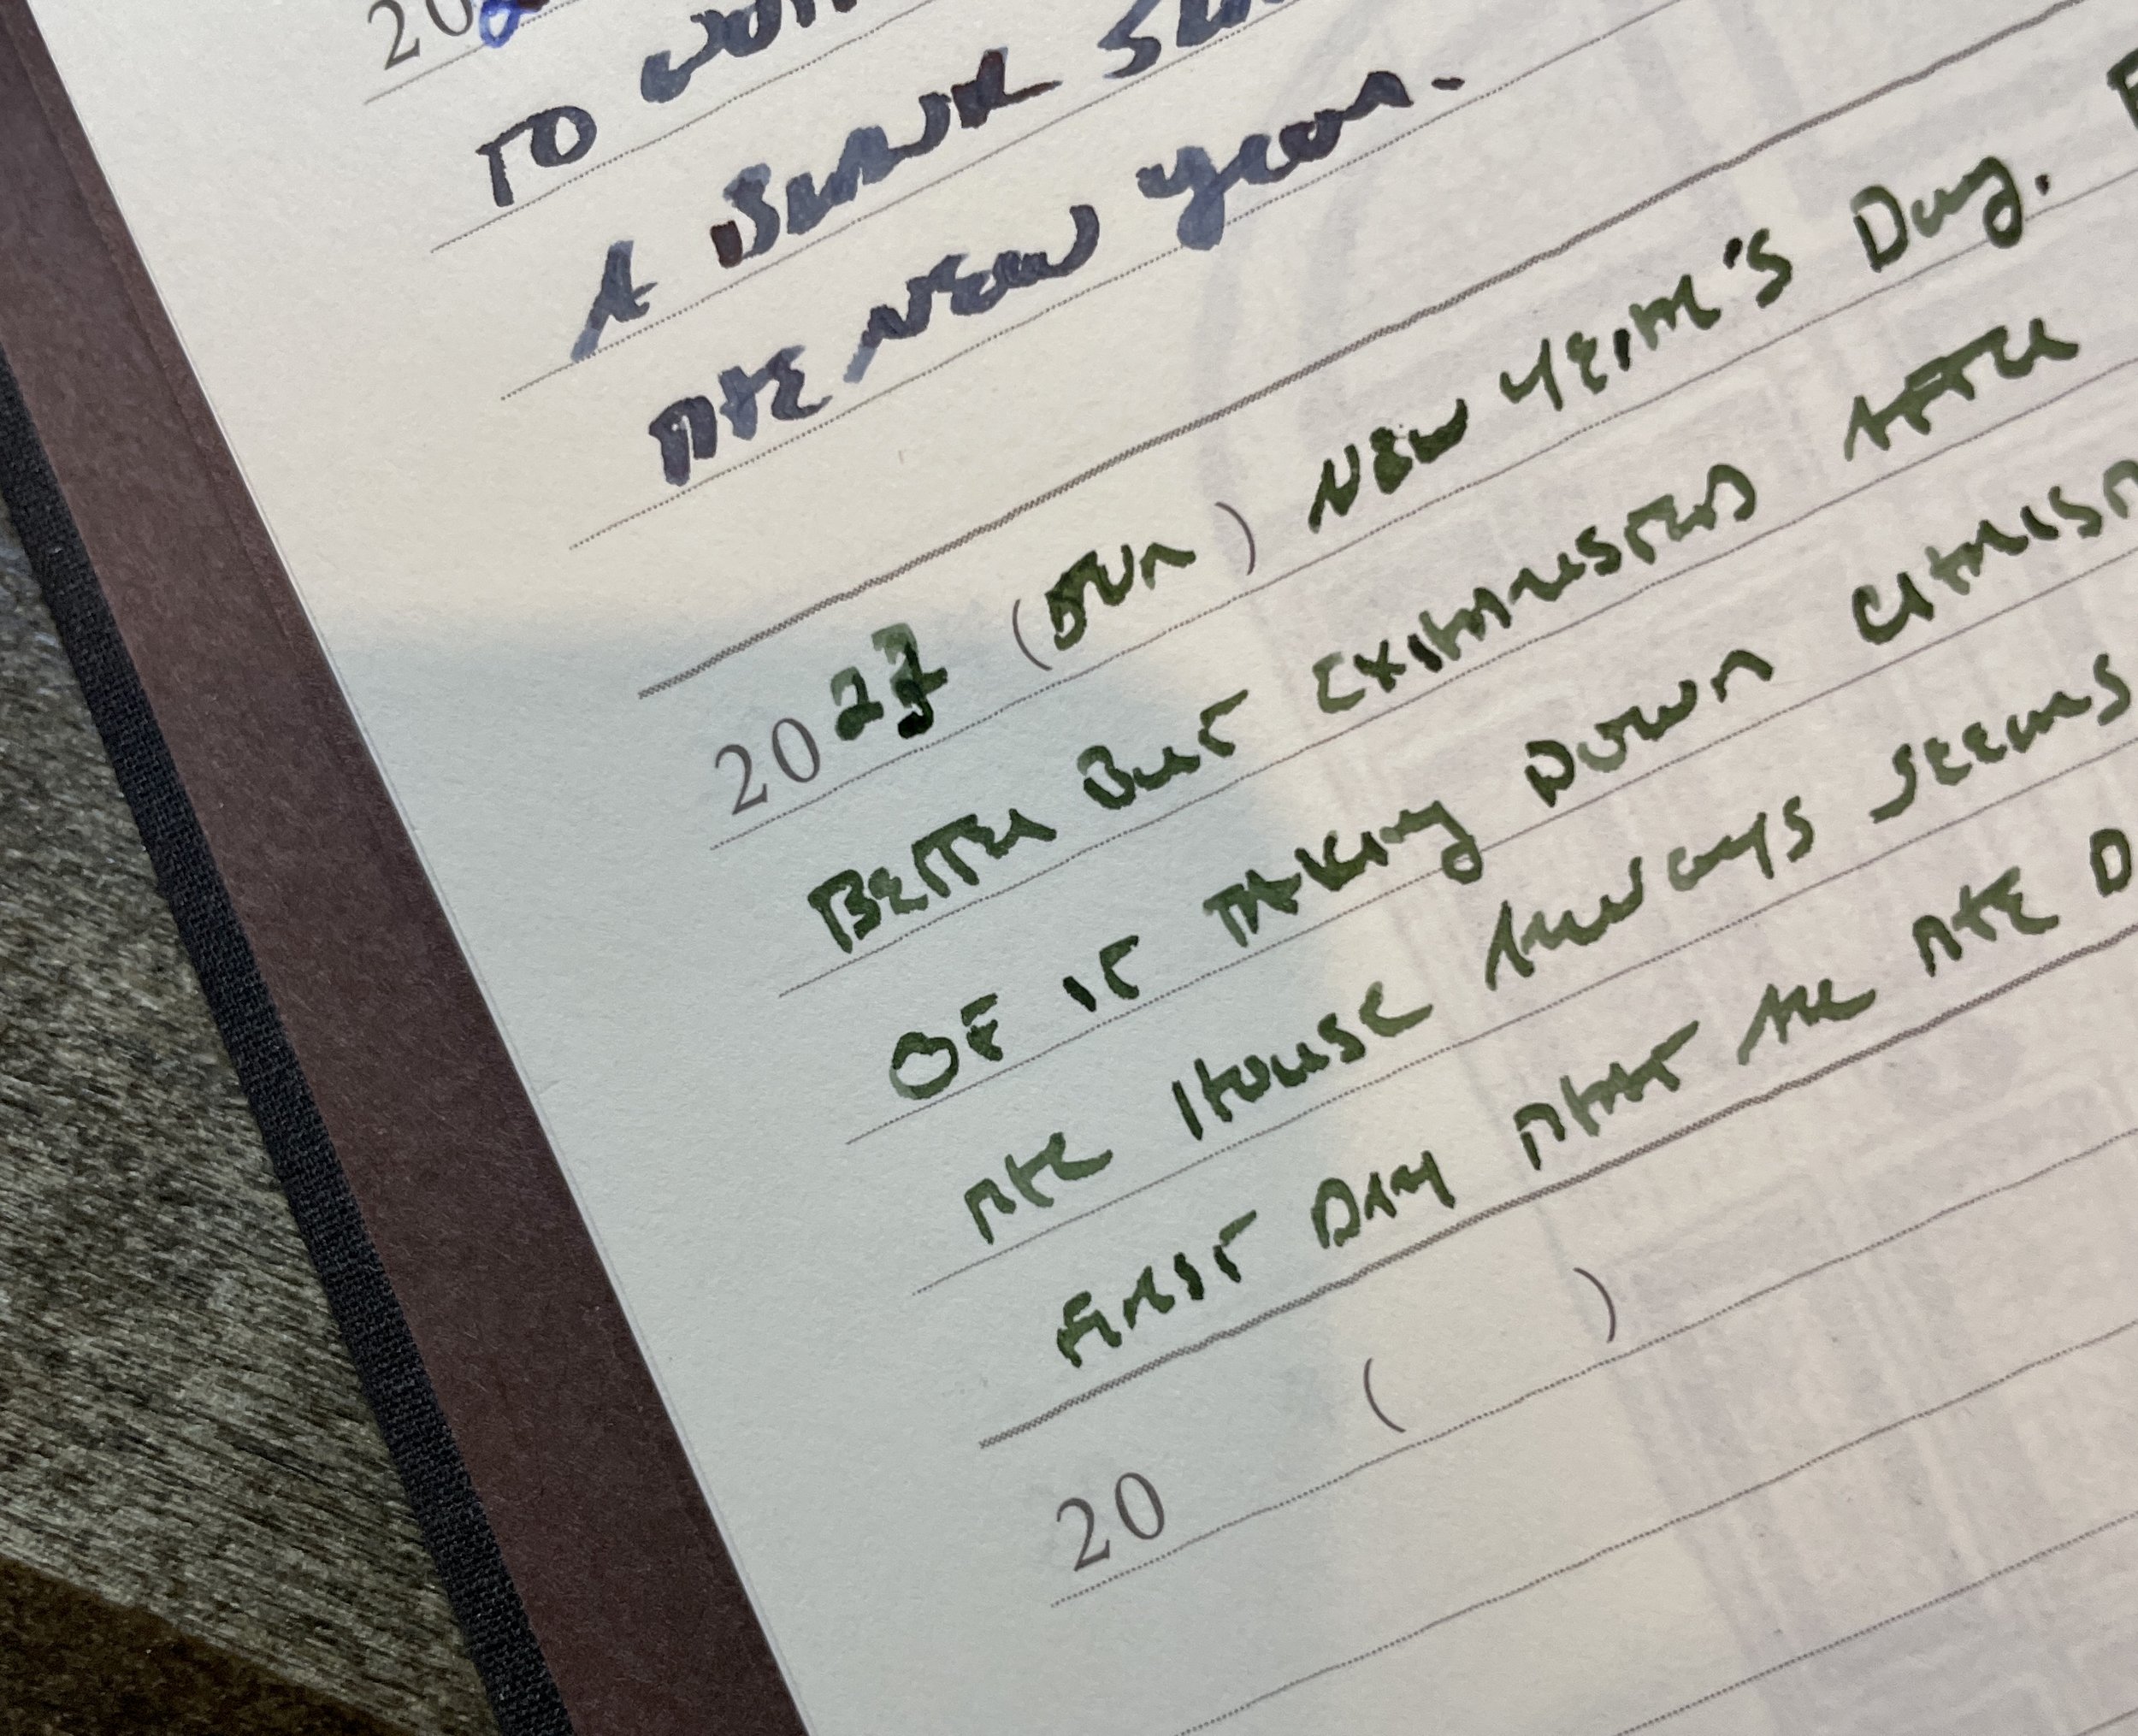 20
TO
A BLANK
THE NEW YEAR.
2023 (SUN) NEW YEAR'S DAY.
BETTER BUT EXHAUSTED AFTER
OF IT TAKING DOWN
THE HOUSE ALWAYS SEEMS
FIRST DAY THAT ARE THE
20 ( )